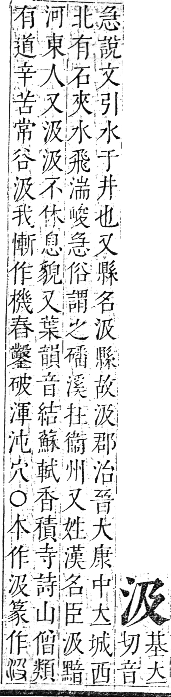 汲
基立
切音
急說文引水于井也又縣名汲縣故汲郡治晉大康中立城西
北有石夾水飛湍峻急俗謂之磻溪在衞州又姓漢名臣汲黯
河東人又汲汲不休息貌又葉韻音結蘇軾香積寺詩山僧類
有道辛苦常谷汲我慚作機舂鑿破渾沌穴○本作汲篆作